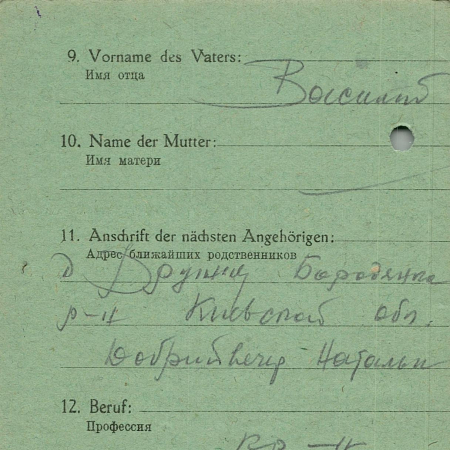 9. Vorname des Vaters:
Имя отца
Василий
10. Name der Mutter:
Имя матери
11. Anschrift der nächsten Angehörigen:
Адрес ближайших родственников
д Друцку Бородянка
р-н Киевской обл.
Натальи
12. Beruf:
Профессия